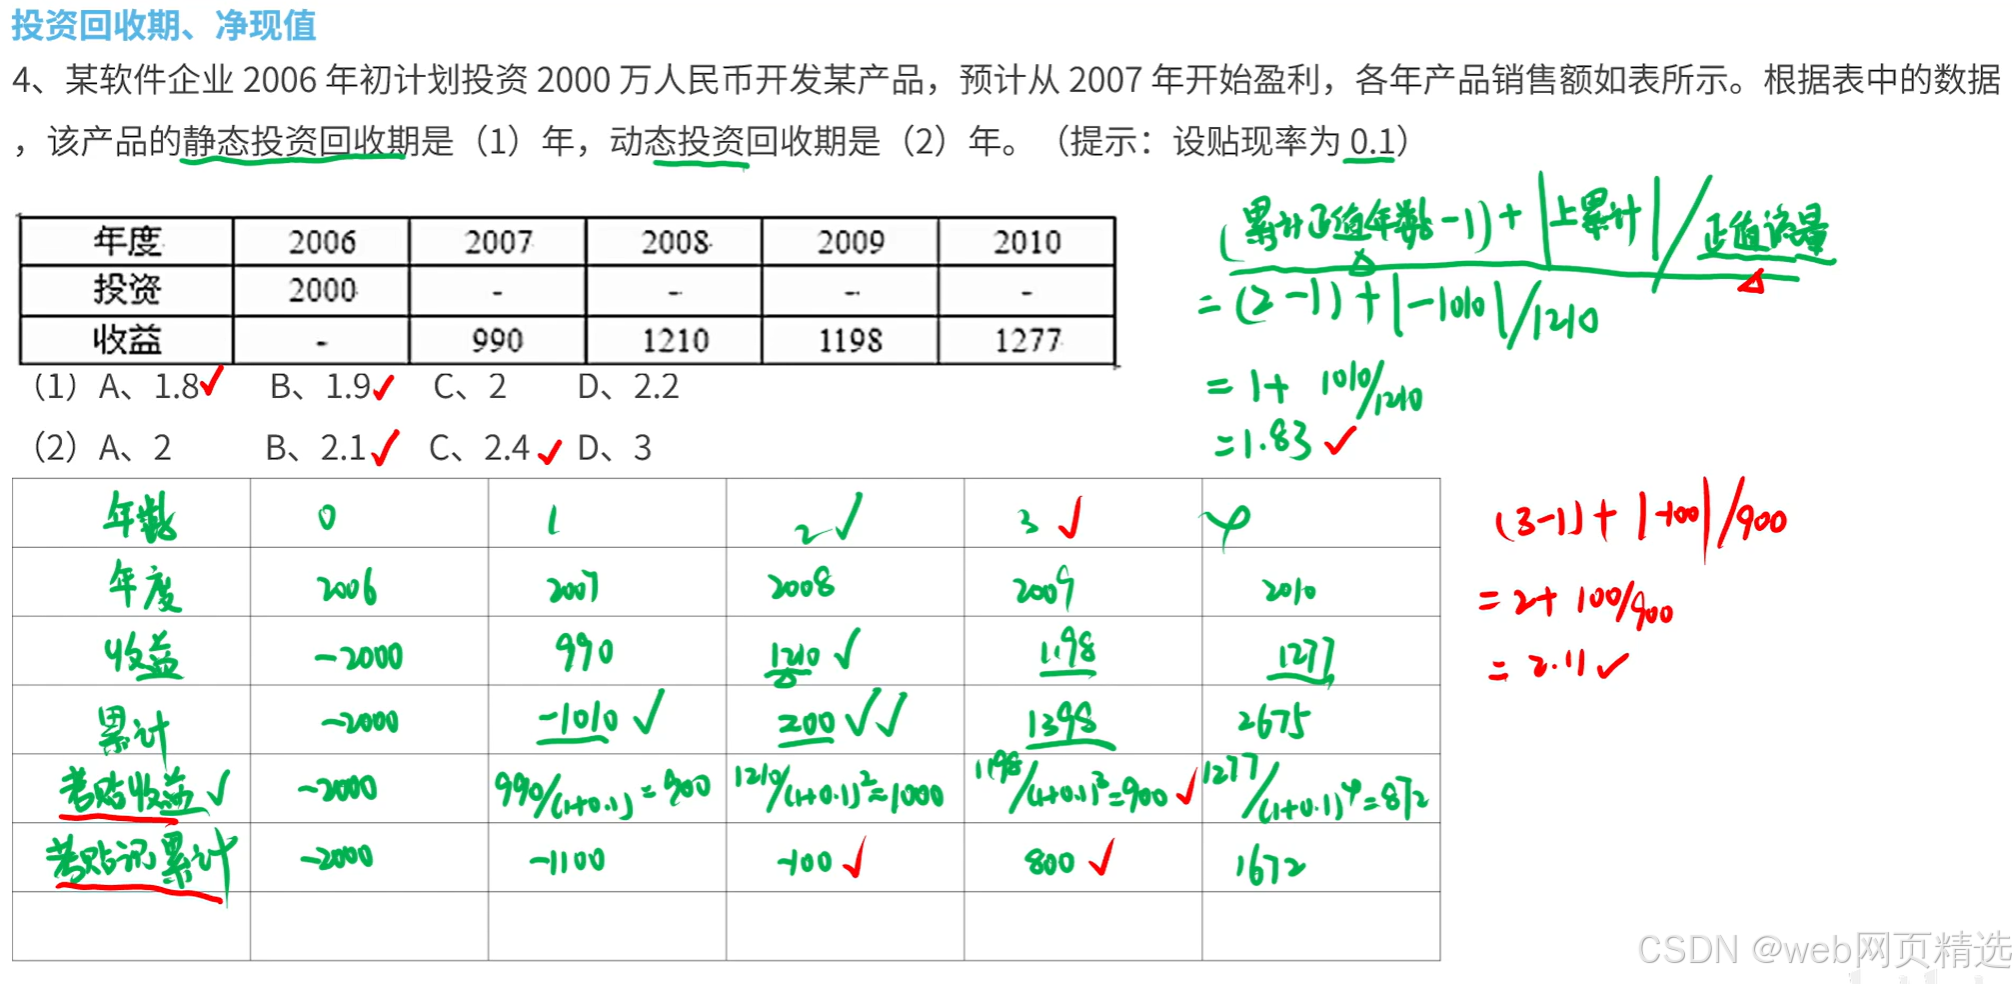 投资回收期、净现值
4、某软件企业 2006 年初计划投资 2000 万人民币开发某产品，预计从 2007 年开始盈利，各年产品销售额如表所示。根据表中的数据
，该产品的静态投资回收期是（1）年，动态投资回收期是（2）年。（提示：设贴现率为 0.1）
年度 2006 2007 2008 2009 2010
投资 2000 - - - -
收益 - 990 1210 1198 1277
（1）A、1.8✓ B、1.9✓ C、2 D、2.2
（2）A、2 B、2.1✓ C、2.4✓ D、3
(累计正值年数-1)+|上累计|/正值流量
=(2-1)+|-1010|/1210
=1+ 1010/1210
=1.83 ✓
年数 0 1 2✓ 3✓ 4
年度 2006 2007 2008 2009 2010
收益 -2000 990 1210✓ 1198 1277
累计 -2000 -1010✓ 200✓✓ 1398 2675
考贴收益✓ -2000 990/(1+0.1)=900 1210/(1+0.1)²=1000 1198/(1+0.1)³=900✓ 1277/(1+0.1)⁴=872
考贴现累计 -2000 -1100 -100✓ 800✓ 1672
(3-1)+|-100|/900
=2+ 100/900
=2.11✓
CSDN @web网页精选